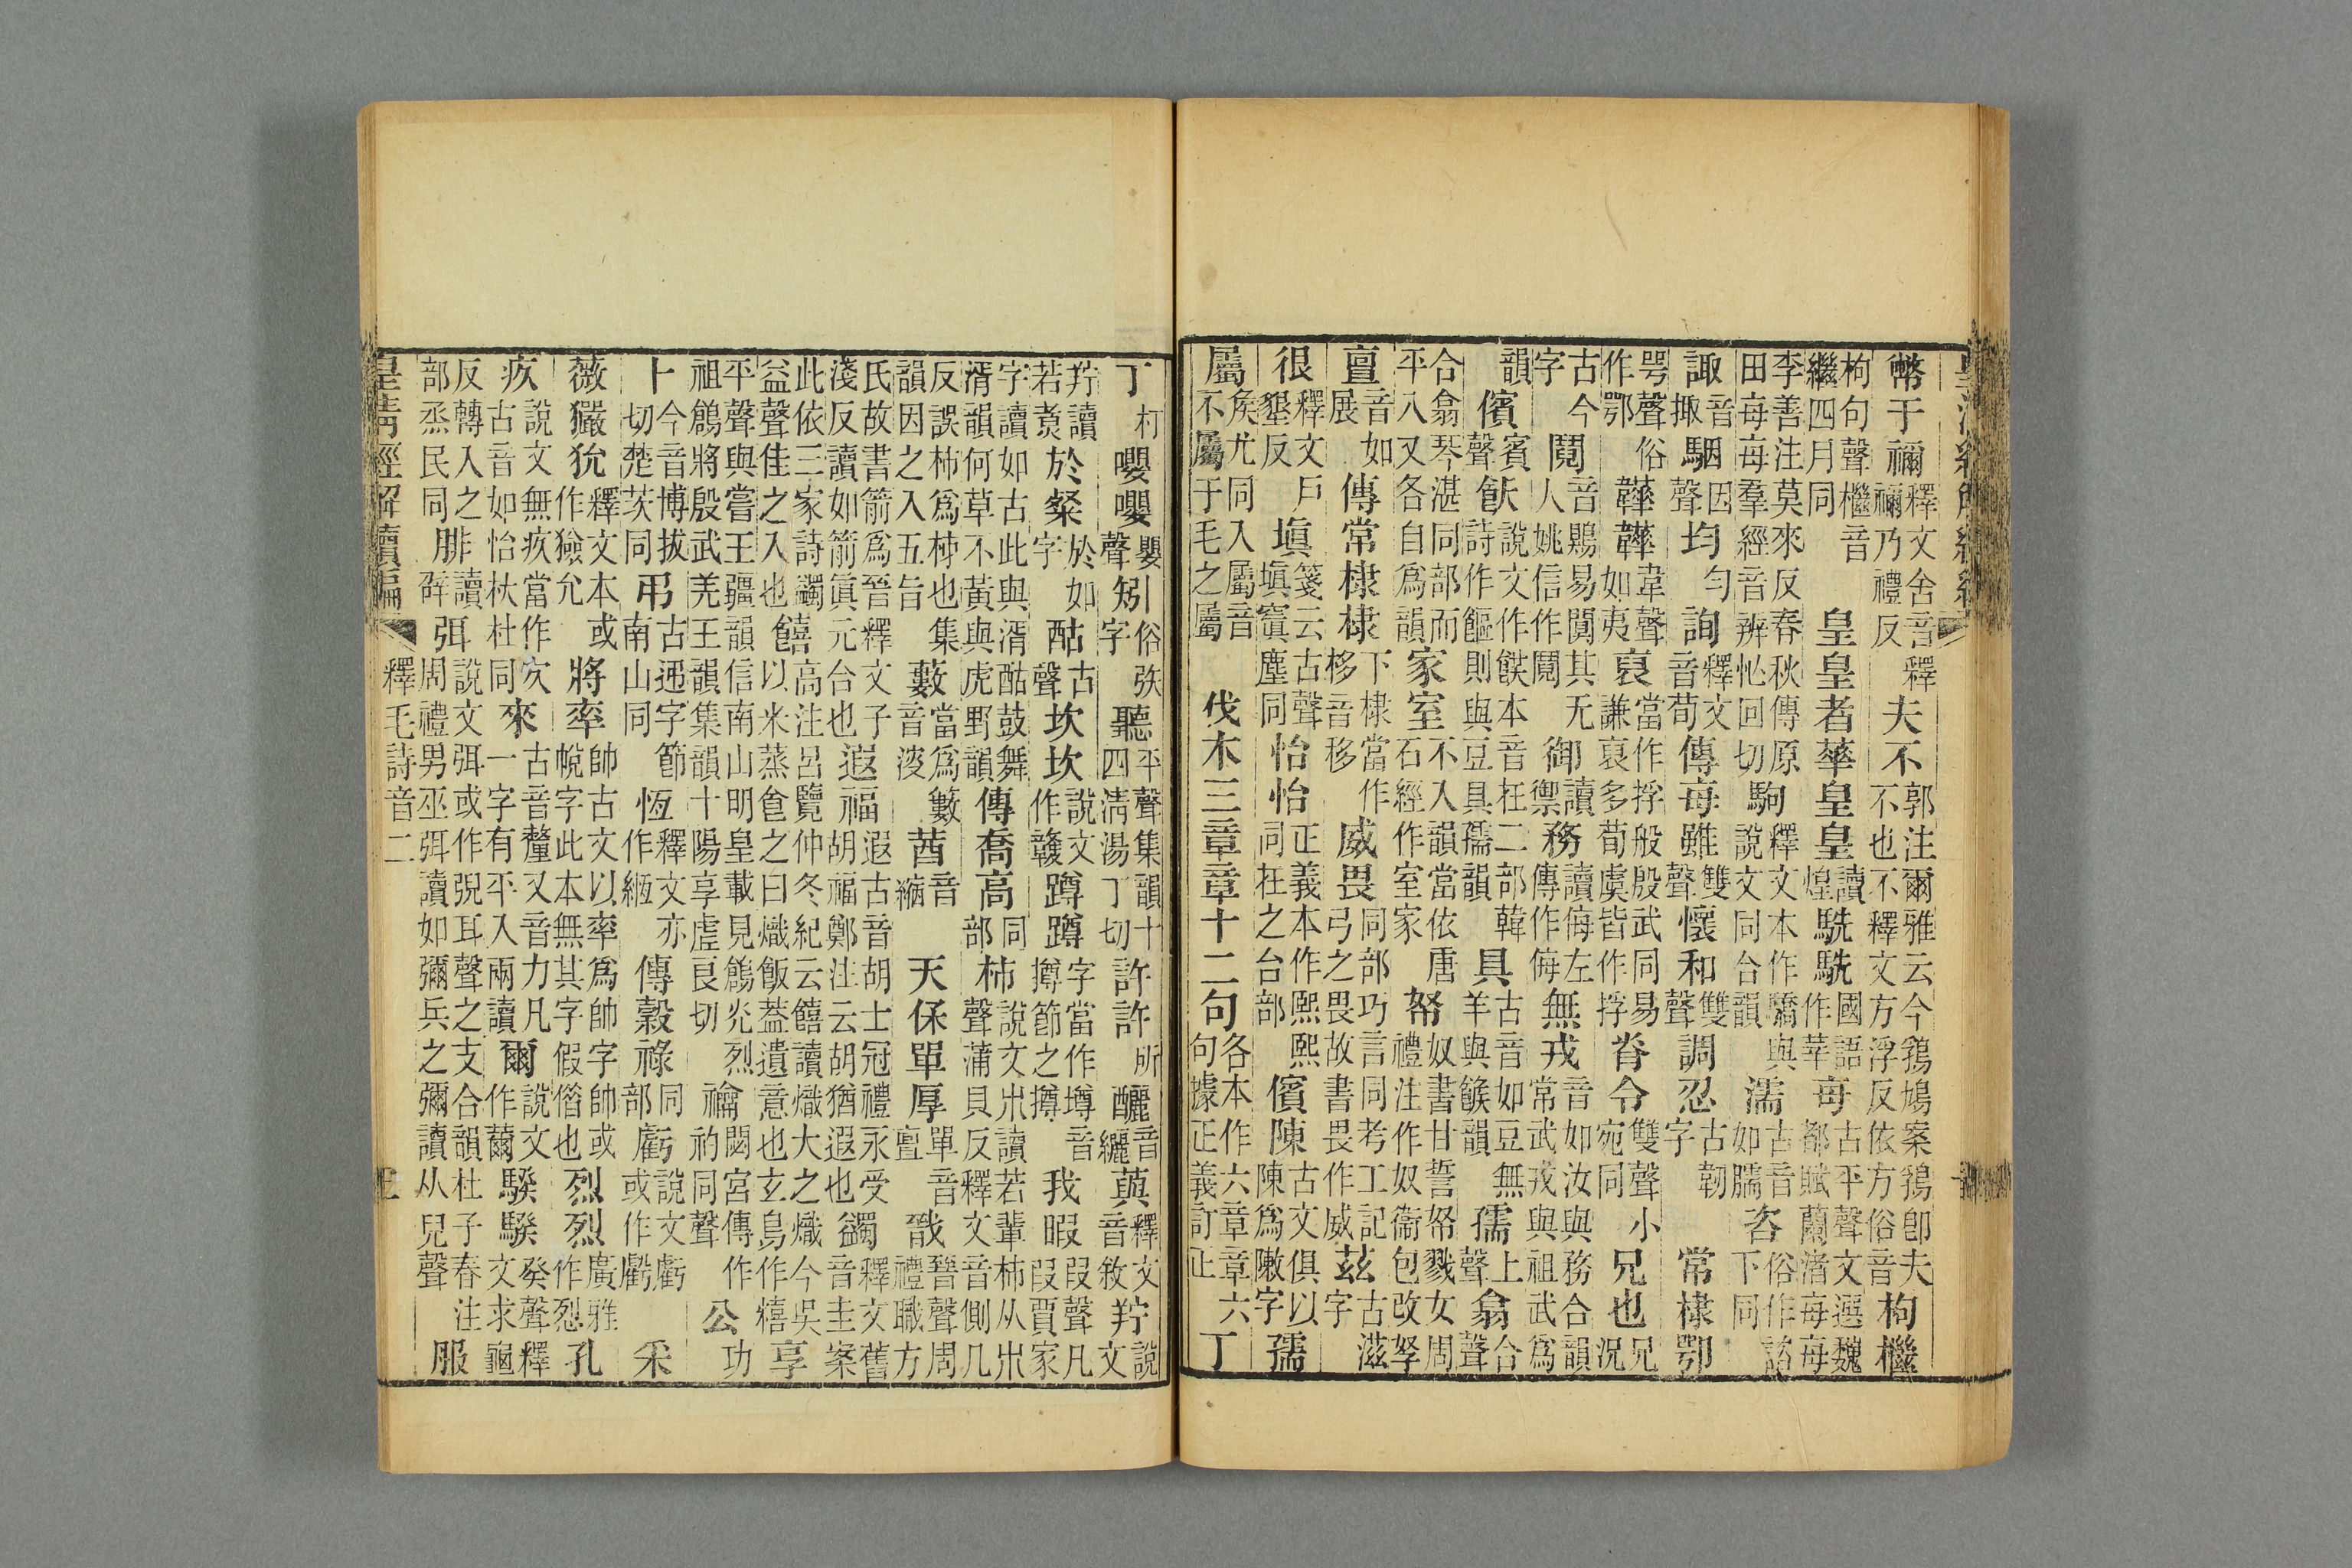 幣于禰釋文舍音釋禰乃禮反夫不郭注爾雅云今鵓鳩案鵓卽夫不也不釋文方浮反依方俗音枸檵
枸句聲檵音繼四月同皇皇者華皇皇讀煌駪駪國語作莘每古平聲文選魏都賦蘭渚每每
李善注莫來反春秋傳原田每每羣經音辨恾回切駒釋文本作驕與說文同合韻濡古音如臑咨俗作諮下同
諏音掫駰因聲均勻詢釋文音荀傳每雖雙聲懷和雙聲調忍古韌字常棣鄂
咢聲俗作鄂韡韡韋聲如夷裒當作捊般殷武同易謙裒多荀虞皆作捊脊令雙聲小宛同兄也兄況
古今字鬩音鶪易闃其无人姚信作鬩御讀禦務讀侮左傳作侮無戎音如汝與務合韻常武戎與祖武爲
韻儐賓聲飫說文作䬽本音在二部韓詩作饇則與豆具孺韻具古音如豆無羊與餱韻孺上聲翕合聲
合翕琴湛同部而平入又各自爲韻家室不入韻當依唐石經作室家帑奴書甘誓帑戮女周禮注作奴衞包改孥
亶音如展傳常棣棣下棣當作栘音移威畏同部巧言同考工記弓之畏故書畏作威茲古滋字
很釋文戶墾反塡箋云古聲塡窴塵同怡怡正義本作熙熙同在之台部儐陳古文俱以陳爲敶字孺
屬矦尤同入屬音不屬于毛之屬 伐木三章章十二句各本作六章章六句據正義訂正丁
丁村嚶嚶嬰聲矧俗矤字聽平聲集韻十四淸湯丁切許許所釃音纚藇釋文音敘羜說文
羜讀若煑於粲於如字酤古聲坎坎說文作竷蹲蹲字當作墫音撙節之撙我暇叚聲凡叚賈家
字讀如古此與湑酤鼓舞湑韻何草不黃與虎野韻傳喬高同部杮說文𣎵讀若輩杮从𣎵聲蒲貝反釋文音側几
反誤杮爲柹也集韻因之入五旨藪當爲籔音溲莤音縮 天保單厚單音亶戩晉聲周禮職方
氏故書箭爲晉釋文子淺反讀如箭眞元合也遐福遐古音胡士冠禮永受胡福鄭注云胡猶遐也蠲釋文舊音圭案
此依三家詩蠲益聲佳之入也饎高注呂覽仲冬紀云饎讀熾大之熾今吳以米蒸飤之曰熾飯蓋遺意也玄鳥作糦享
平聲與嘗王疆韻信南山明皇載見鶬灮烈祖鶬將殷武羌王韻集韻十陽享虛良切禴閟宮傳作礿同聲公功
卜今音博拔切楚茨同弔古字節南山同恆釋文亦作緪傳穀祿同部虧說文虧或作𧇾 采
薇玁狁釋文本或作獫允將率帥古文以率爲帥字帥或帨字此本無其字假借也烈烈廣雅作烮孔
疚說文無疚當作㝌古音如怡杕杜同來古音釐又音力凡一字有平入兩讀爾說文作薾騤騤癸聲釋文求龜
反轉入之部烝民同腓讀弭說文弭或作𢏚耳聲之支合韻杜子春注周禮男巫弭讀如彌兵之彌讀从兒聲服
皇淸經解續編 釋毛詩音二